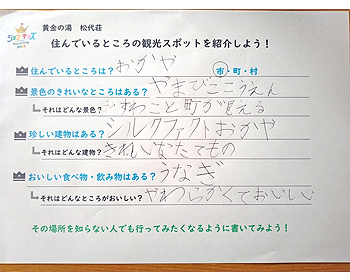 黄金の湯 松代荘
住んでいるところの観光スポットを紹介しよう！
住んでいるところは？おかや 市・町・村
景色のきれいなところはある？やまびここうえん
それはどんな景色？すわこと町が見える
珍しい建物はある？シルクファクトおかや
それはどんな建物？きれいなたてもの
おいしい食べ物・飲み物はある？うなぎ
それはどんなところがおいしい？やわらかくておいしい
その場所を知らない人でも行ってみたくなるように書いてみよう！